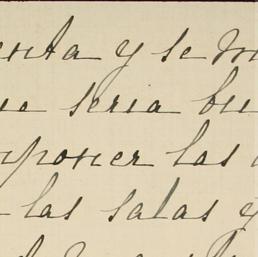 enta y se m
ue seria bu
mponer las
las salas y